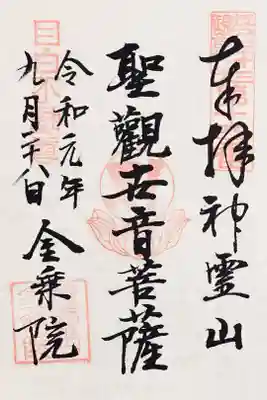 奉拝神霊山
聖觀世音菩薩
令和元年
九月二十八日
金乗院